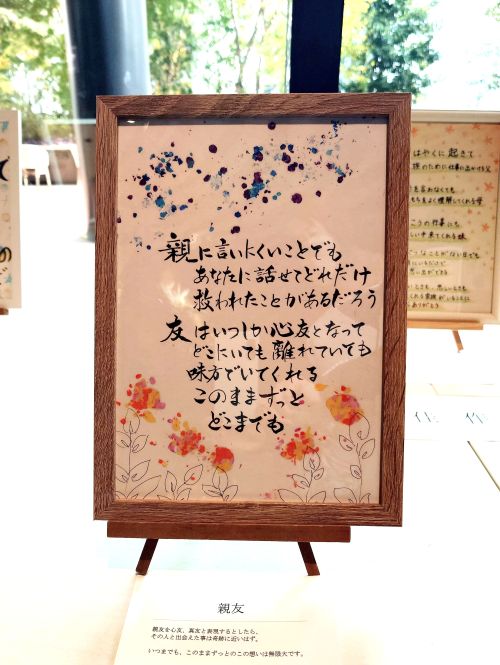 親に言いにくいことでも
あなたに話せてどれだけ
救われたことがあるだろう
友はいつしか心友となって
どこにいても離れていても
味方でいてくれる
このままずっと
どこまでも
親友
親友を心友、真友と表現するとしたら、
その人と出会えた事は奇跡に近いはず。
いつまでも、このままずっとのこの想いは無限大です。
はやくに起きて
族のために仕事に出かける父
佳 作